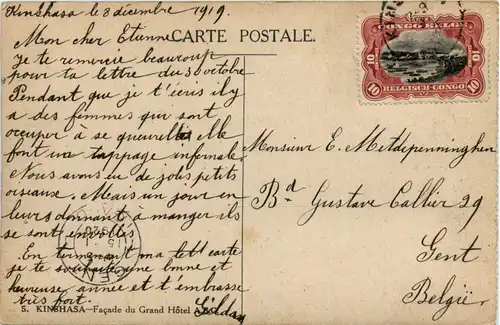 Kinshasa le 8 décembre 1919.
Mon cher Etienne
CARTE POSTALE.
Je te remercie beaucoup
pour ta lettre du 30 octobre
Pendant que je t'écris il y
a des femmes qui sont
occuper a se quereller Elle
font un tappage infernale.
Nous avons eu de jolis petits
oiseaux. Mais un jour en
leurs donnant a manger ils
se sont envolés
En terminant ma lett carte
je te souhaite une bonne et
heureuse année et t'embrasse
très fort.
5. KINSHASA—Façade du Grand Hôtel
CONGO BELGE
10 10
10 10
BELGISCH-CONGO
Monsieur E. Metdepenninghen
Bd Gustave Callier 29
Gent
België